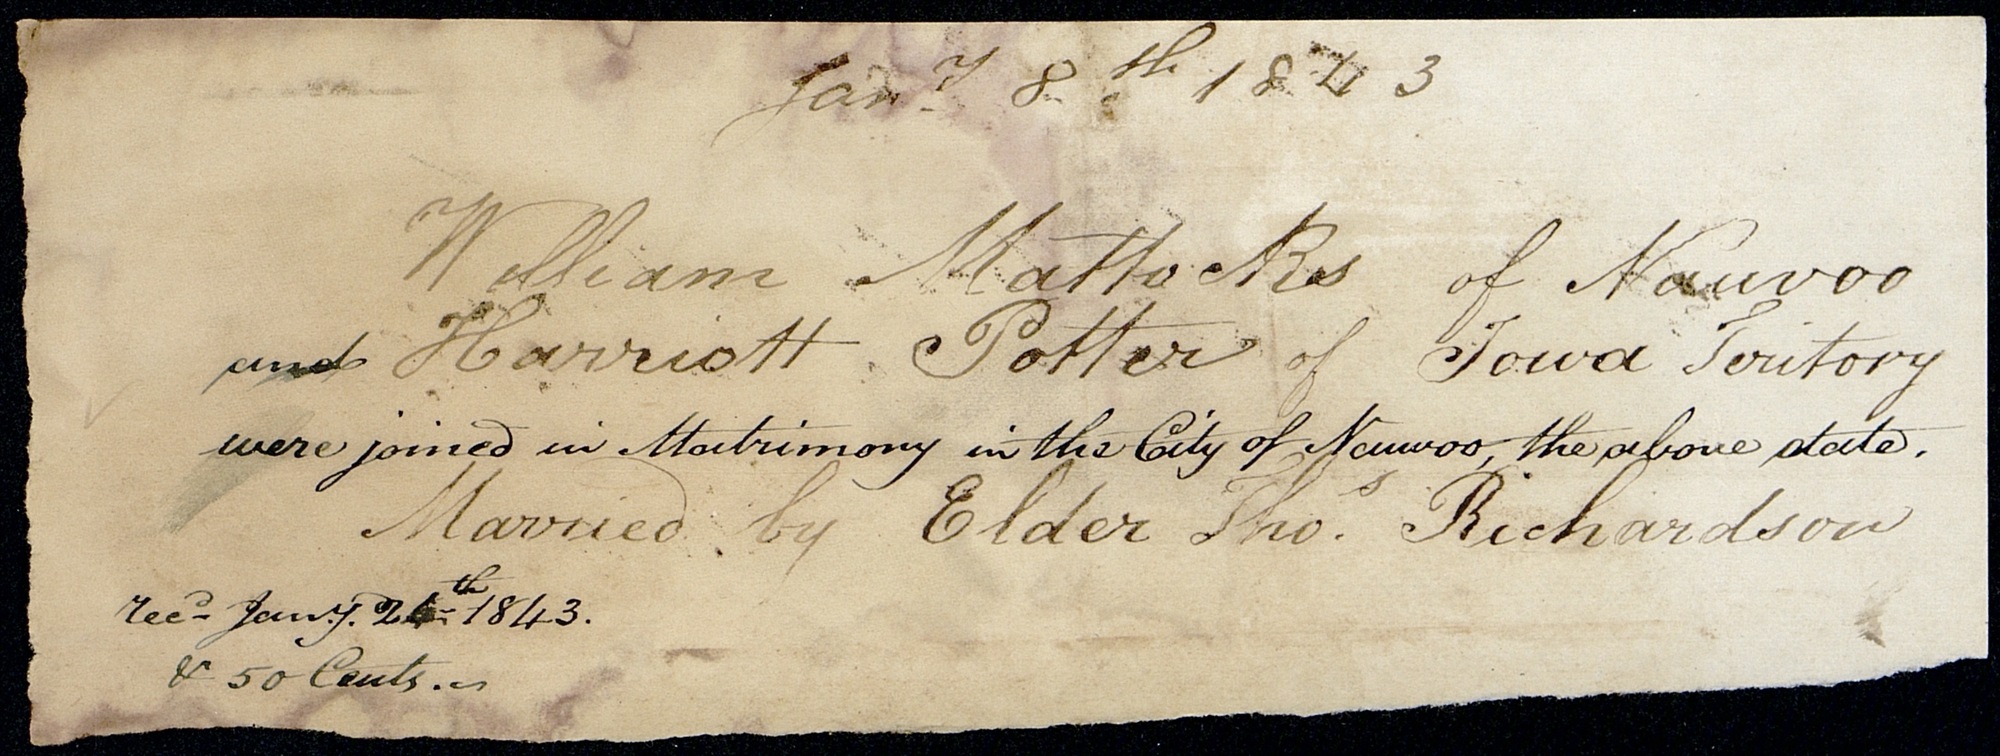 Jany 8th 1843
William Mattocks of Nauvoo
and Harriott Potter of Iowa Teritory
were joined in Matrimony in the City of Nauvoo, the above date.
Married by Elder Thos. Richardson
recd Jany. th 1843.
& 50 Cents.